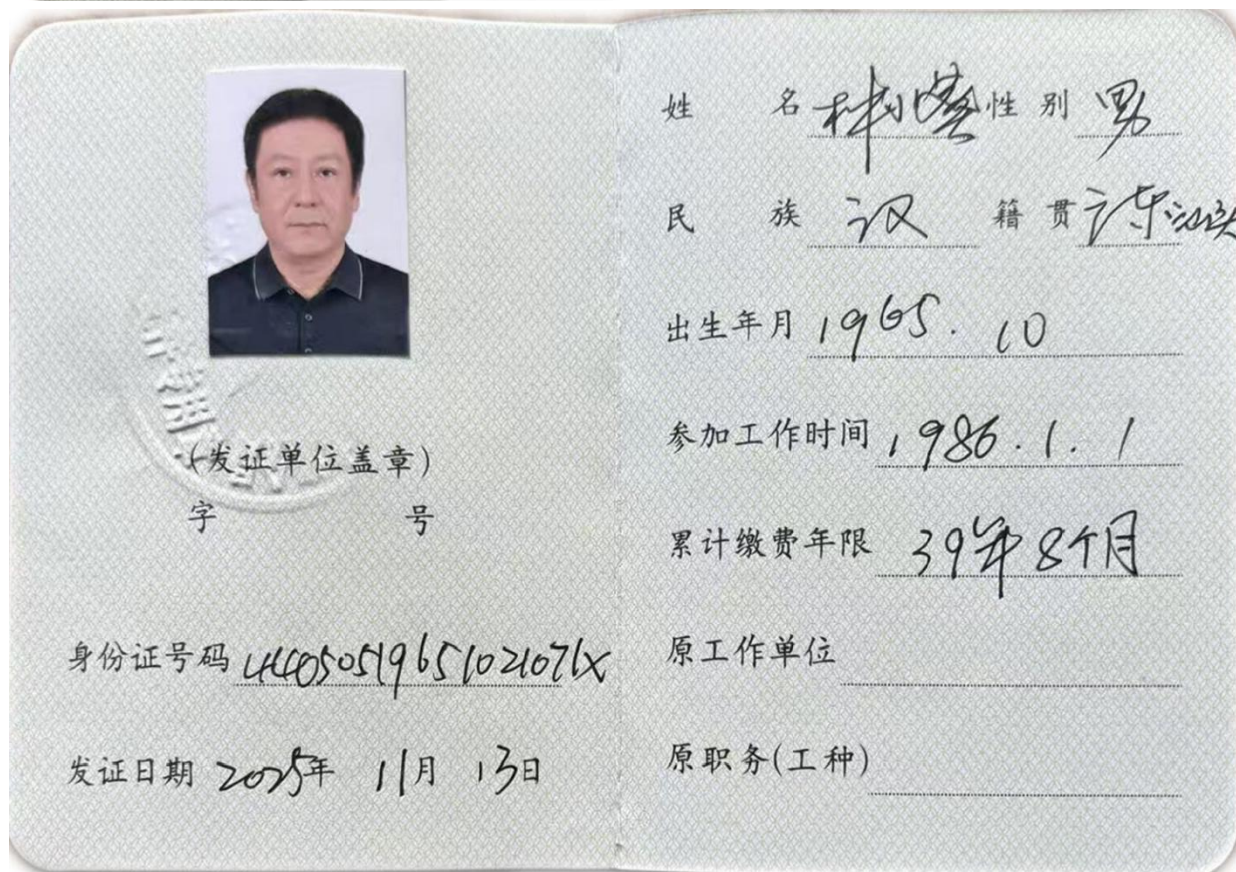 (发证单位盖章)
字 号
身份证号码 44050519651021071X
发证日期 2025年 11月 13日
姓 名 林 性别 男
民 族 汉 籍贯 广东汕头
出生年月 1965.10
参加工作时间 1986.1.1
累计缴费年限 39年8个月
原工作单位
原职务(工种)